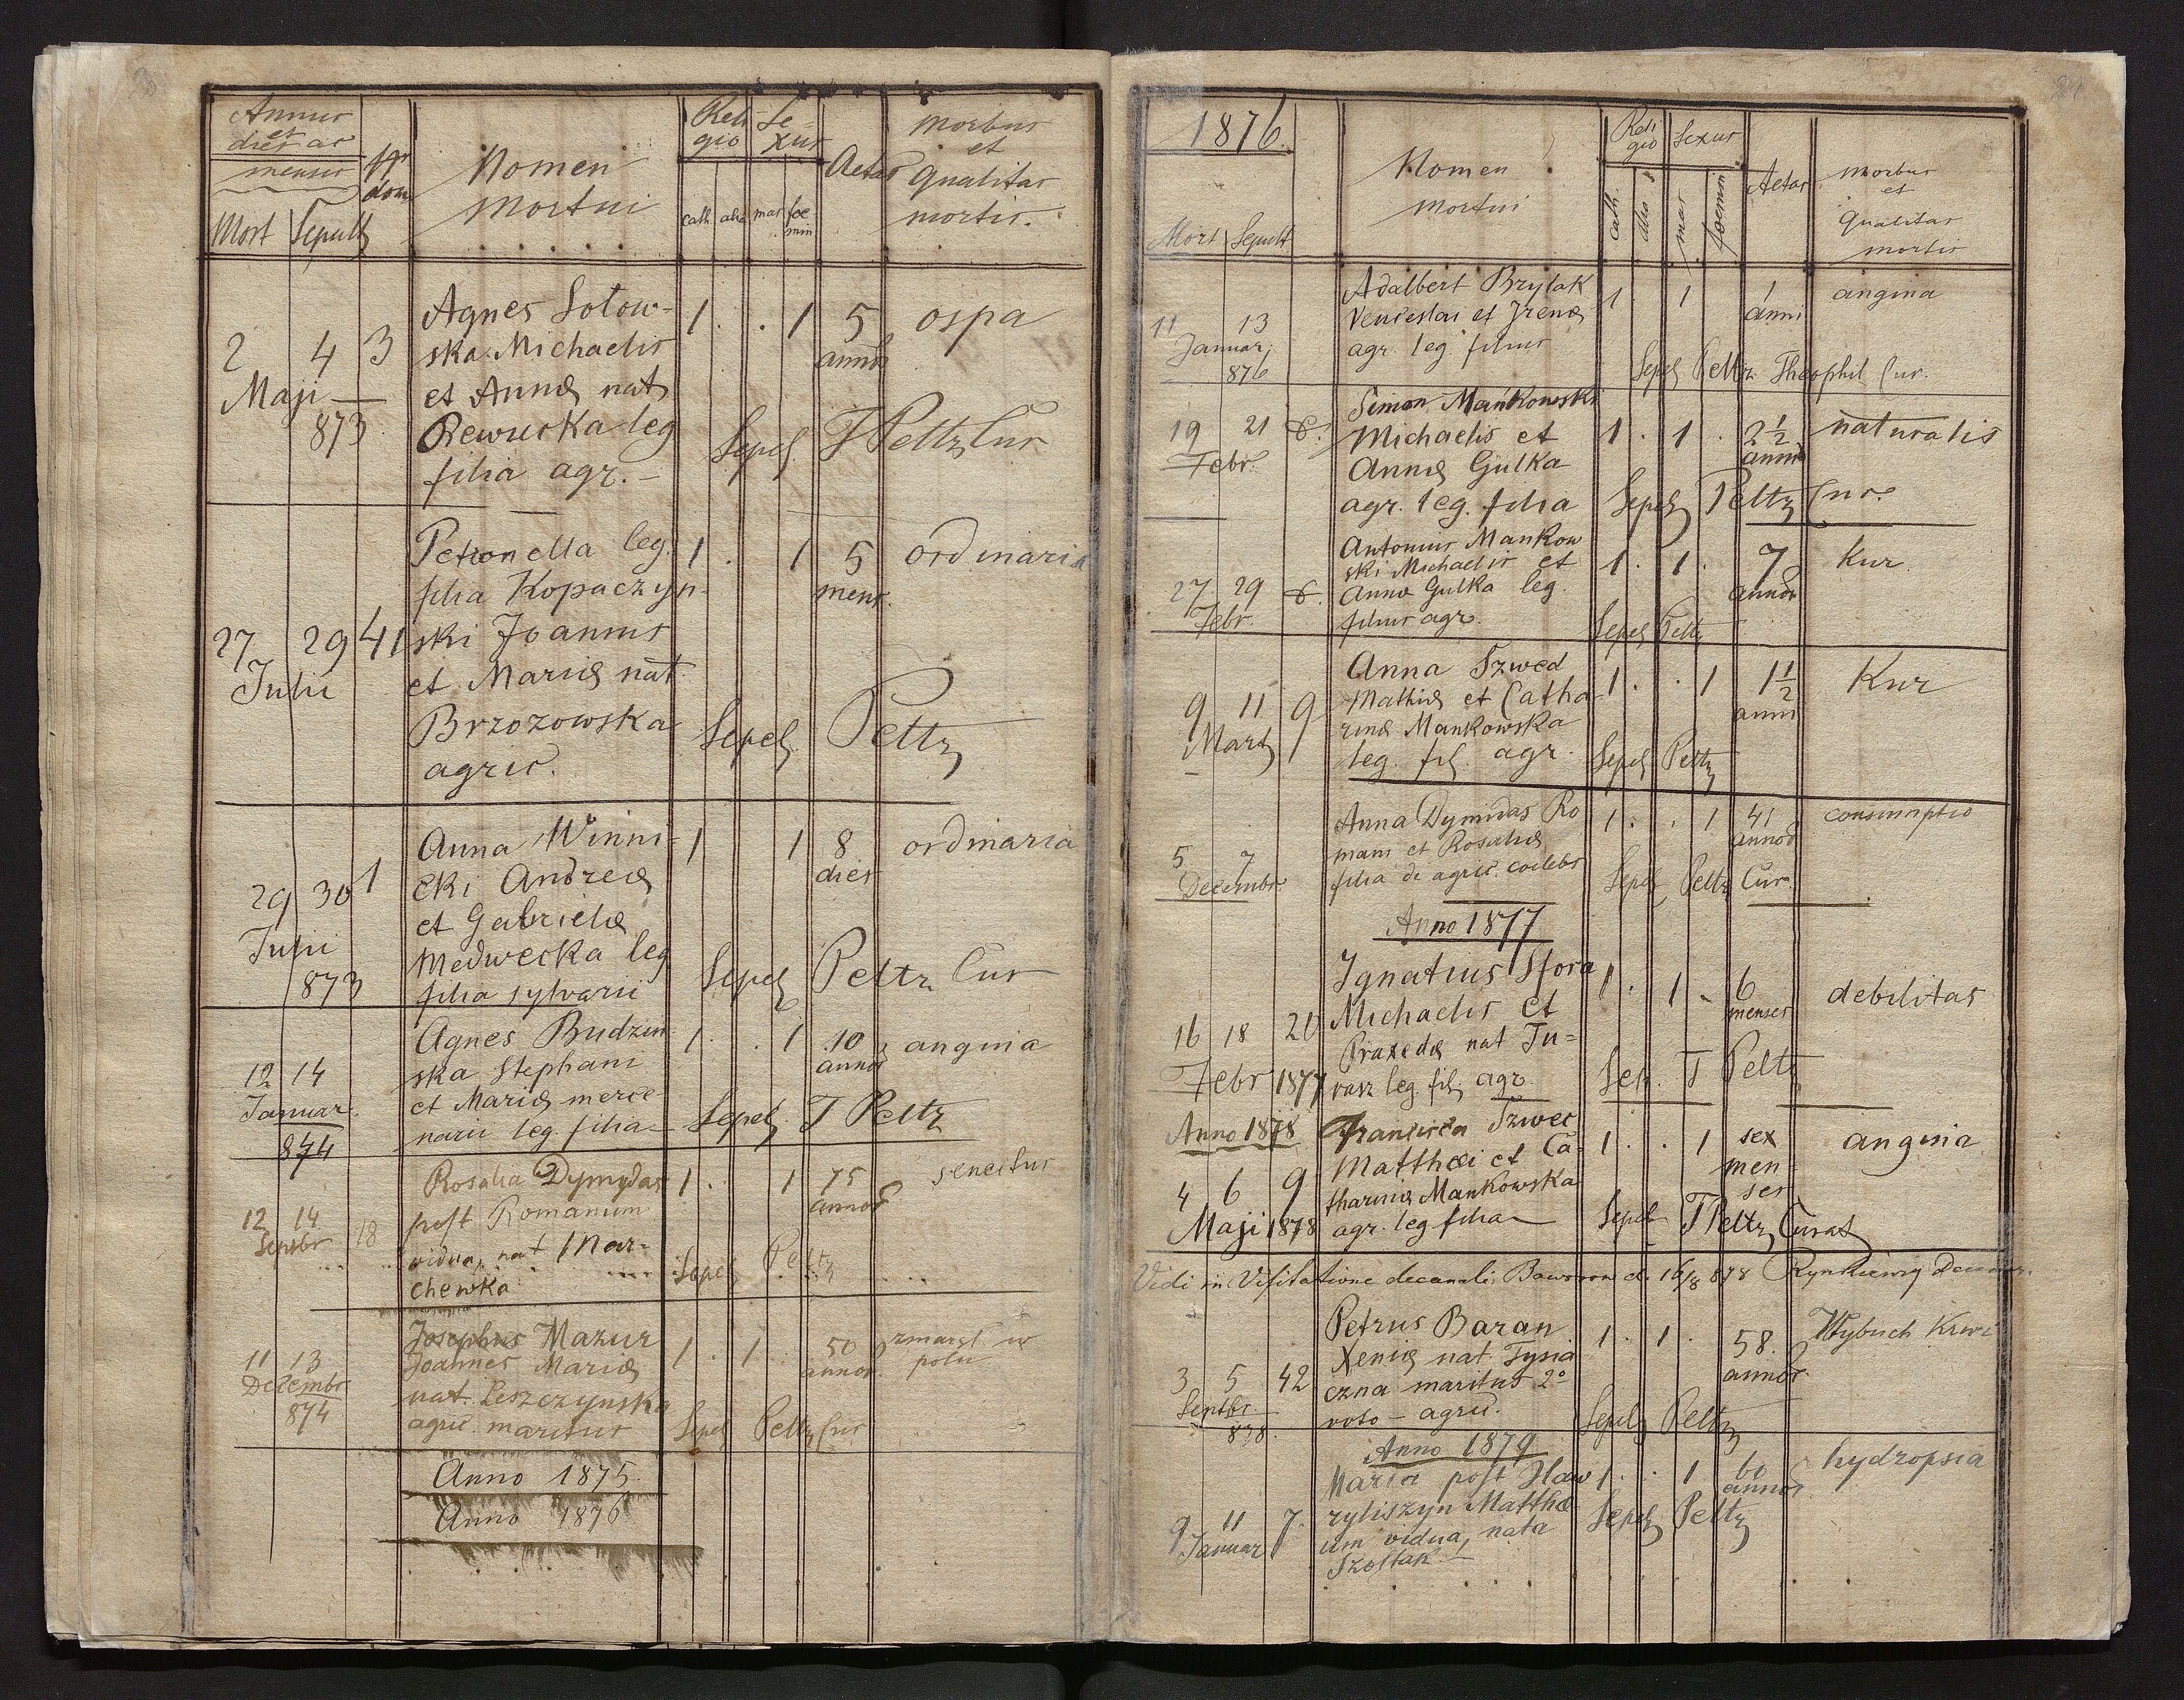 Annus et dies ac mensis
Nr dom
Nomen mortui
Religio
Sexus
Aetas
Morbus et Qualitas mortis.
Mort Sepult
cath alia mas foemin
Agnes Sotow- 1 . . 1 5 ospa
2 4 3 ska Michaelis annor
Maji et Annæ nat
873 Rewucka leg Sepel T Peltz Cur
filia agr.
Petronella leg. 1 . 1 5 ordinaria
filia Kopaczyn- mens.
27 29 41 ski Joannis
Julii et Mariæ nat.
Brzozowska Sepel. Peltz
agric.
Anna Winni- 1 1 8 ordinaria
29 30 1 cki Andreæ dies
et Gabrielæ
Julii Medwecka leg Sepel Peltz Cur
873 filia sylvarii
Agnes Budzin- 1 . . 1 10 angina
12 14 ska Stephani annor
Januar. et Mariæ merce-
874 narii leg. filia Sepel. T Peltz
Rosalia Dymydas 1 . 1 75 senectus
12 14 18 post Romanum annor
Septbr vidua, nat Mar- Sepel Peltz
chewka
Josephus Mazur 1 . 1 . 50 zmarzł w
11 13 Joannes Mariæ annor. polu
Decembr nat. Leszczynska
874 agric. maritus Sepel Peltz Cur
Anno 1875.
Anno 1876
1876.
Nomen mortui
Religio
Sexus
Aetas
Morbus et Qualitas mortis
Mort Sepult
cath. alia mas foemin
Adalbert Brylak 1 . 1 1 angina
11 13 Venceslai et Irenæ anni
Januar. agr. leg. filius
876 Sepel Peltz Theophil Cur.
Simon Mańkowski
19 21 8. Michaelis et 1 . 1 . 2½ naturalis
Febr. Annæ Gulka anni
agr. leg. filia Sepel Peltz Cur.
Antonius Mankow
ski Michaelis et 1 . 1 . 7 Kur.
27 29 8. Annæ Gulka leg. annor
Febr. filius agr. Sepel Peltz
Anna Szwed 1 . . 1 1½ Kur
9 11 9 Mathiæ et Catha anni
Mart rinæ Mankowska
leg. fil. agr. Sepel Peltz
Anna Dymidas Ro 1 . . 1 41 consumptio
mani et Rosaliæ annor
5 7 filia de agric. coelebs Sepel Peltz Cur.
Decembr.
Anno 1877
Ignatius Sfora 1 . 1 . 6 debilitas
Michaelis et menses
16 18 20 Praxedæ nat Tu=
Febr 1877 rasz leg. fil. agr. Sep. T Peltz
Anno 1878 Francisca Szwec
Matthæi et Ca- 1 . . 1 sex angina
4 6 9 tharinæ Mankowska menses
Maji 1878 agr. leg filia Sepel T Peltz Curat
Vidi in Visitatione decanali d. 16/8 878
Petrus Baran 1 . 1 . 58. Wybuch Krwi
Xeniæ nat. Tysia annor.
3 5 42 czna maritus 2º
Septbr voto - agric. Sepel Peltz
878.
Anno 1879
Maria post Haw 1 . . 1 60 hydropsia
ryliszyn Matthæ annor
9 11 7. um vidua, nata Sepel Peltz
Januar Szostak